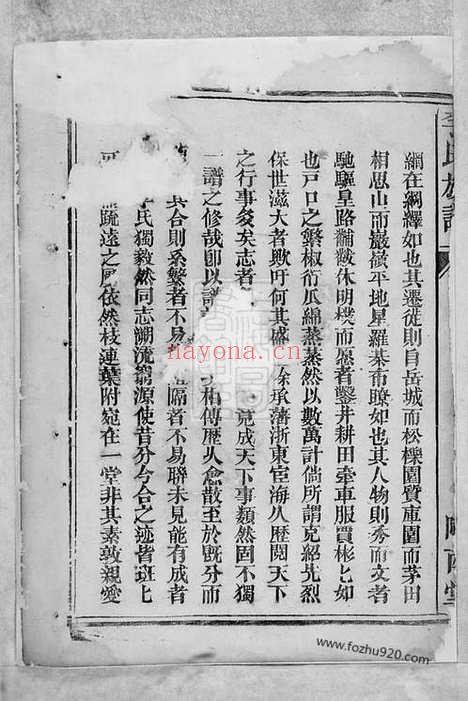 李氏族譜
隴西堂
網在綱繹如也其遷徙則自岳城而松櫟園質庫園而茅田
相思山而巖嶽平地星羅棊布瞭如也其人物則秀而文者
馳驅皇路黼黻休明樸而愿者鑿井耕田牽車服賈彬匕如
也戸口之繁椒衍瓜綿蒸蒸然以數萬計倘所謂克紹先烈
保世滋大者歟吁何其盛 余承藩浙東宦海久歷閱天下
之行事夋矣志者 竟成天下事類然固不獨
一譜之修哉卽以譜 相傳歷久愈散至於旣分而
其合則系繁者不易 隔者不易聯未見能有成者
氏獨毅然同志溯流窮源使昔分今合之迹皆班匕
可 疏遠之 依然枝連葉附宛在一堂非其素敦親愛
nayona.cn
www.fozhu920.com